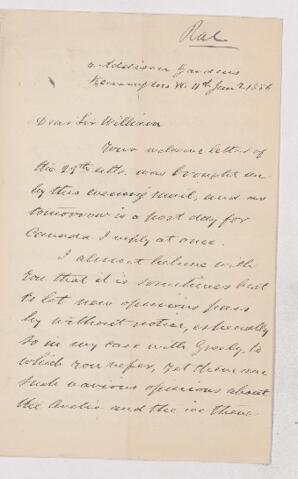 Rae
4 Addison Gardens
Kensington W. 11th Jan 1886
Dear Sir William
Your welcome letter of
the 29th ulto. was brought me
by this evening's mail, and as
tomorrow is a post day for
Canada I reply at once.
I almost believe with
you that it is sometimes best
to let new opinions pass
by without notice, especially
so in my case with Greely, to
which you refer, yet there are
such various opinions about
the Arctic and the ice there